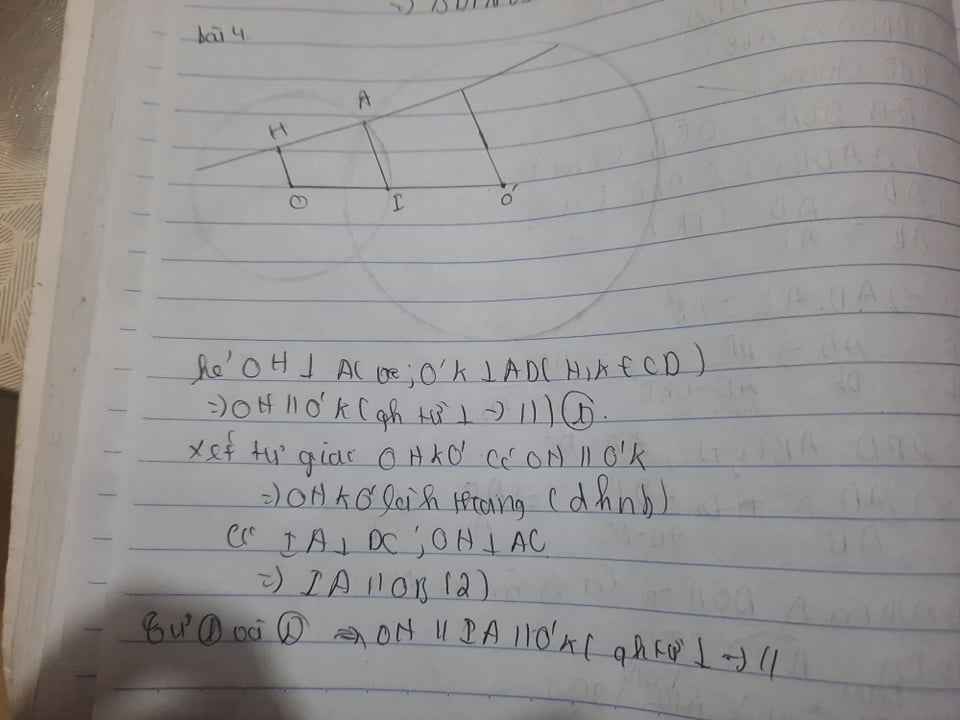 bài 4
H
A
O
I
O'
kẻ OH ⊥ AC ; O'K ⊥ AD (H, K ∈ CD)
=) OH // O'K (qh từ ⊥ -> //) ①.
xét tứ giác OHKO' có OH // O'K
=) OHKO' là h thang (dhnb)
có IA ⊥ DC ; OH ⊥ AC
=) IA // OB (2)
Từ ① và ② => OH // IA // O'K ( qh từ ⊥ -> //